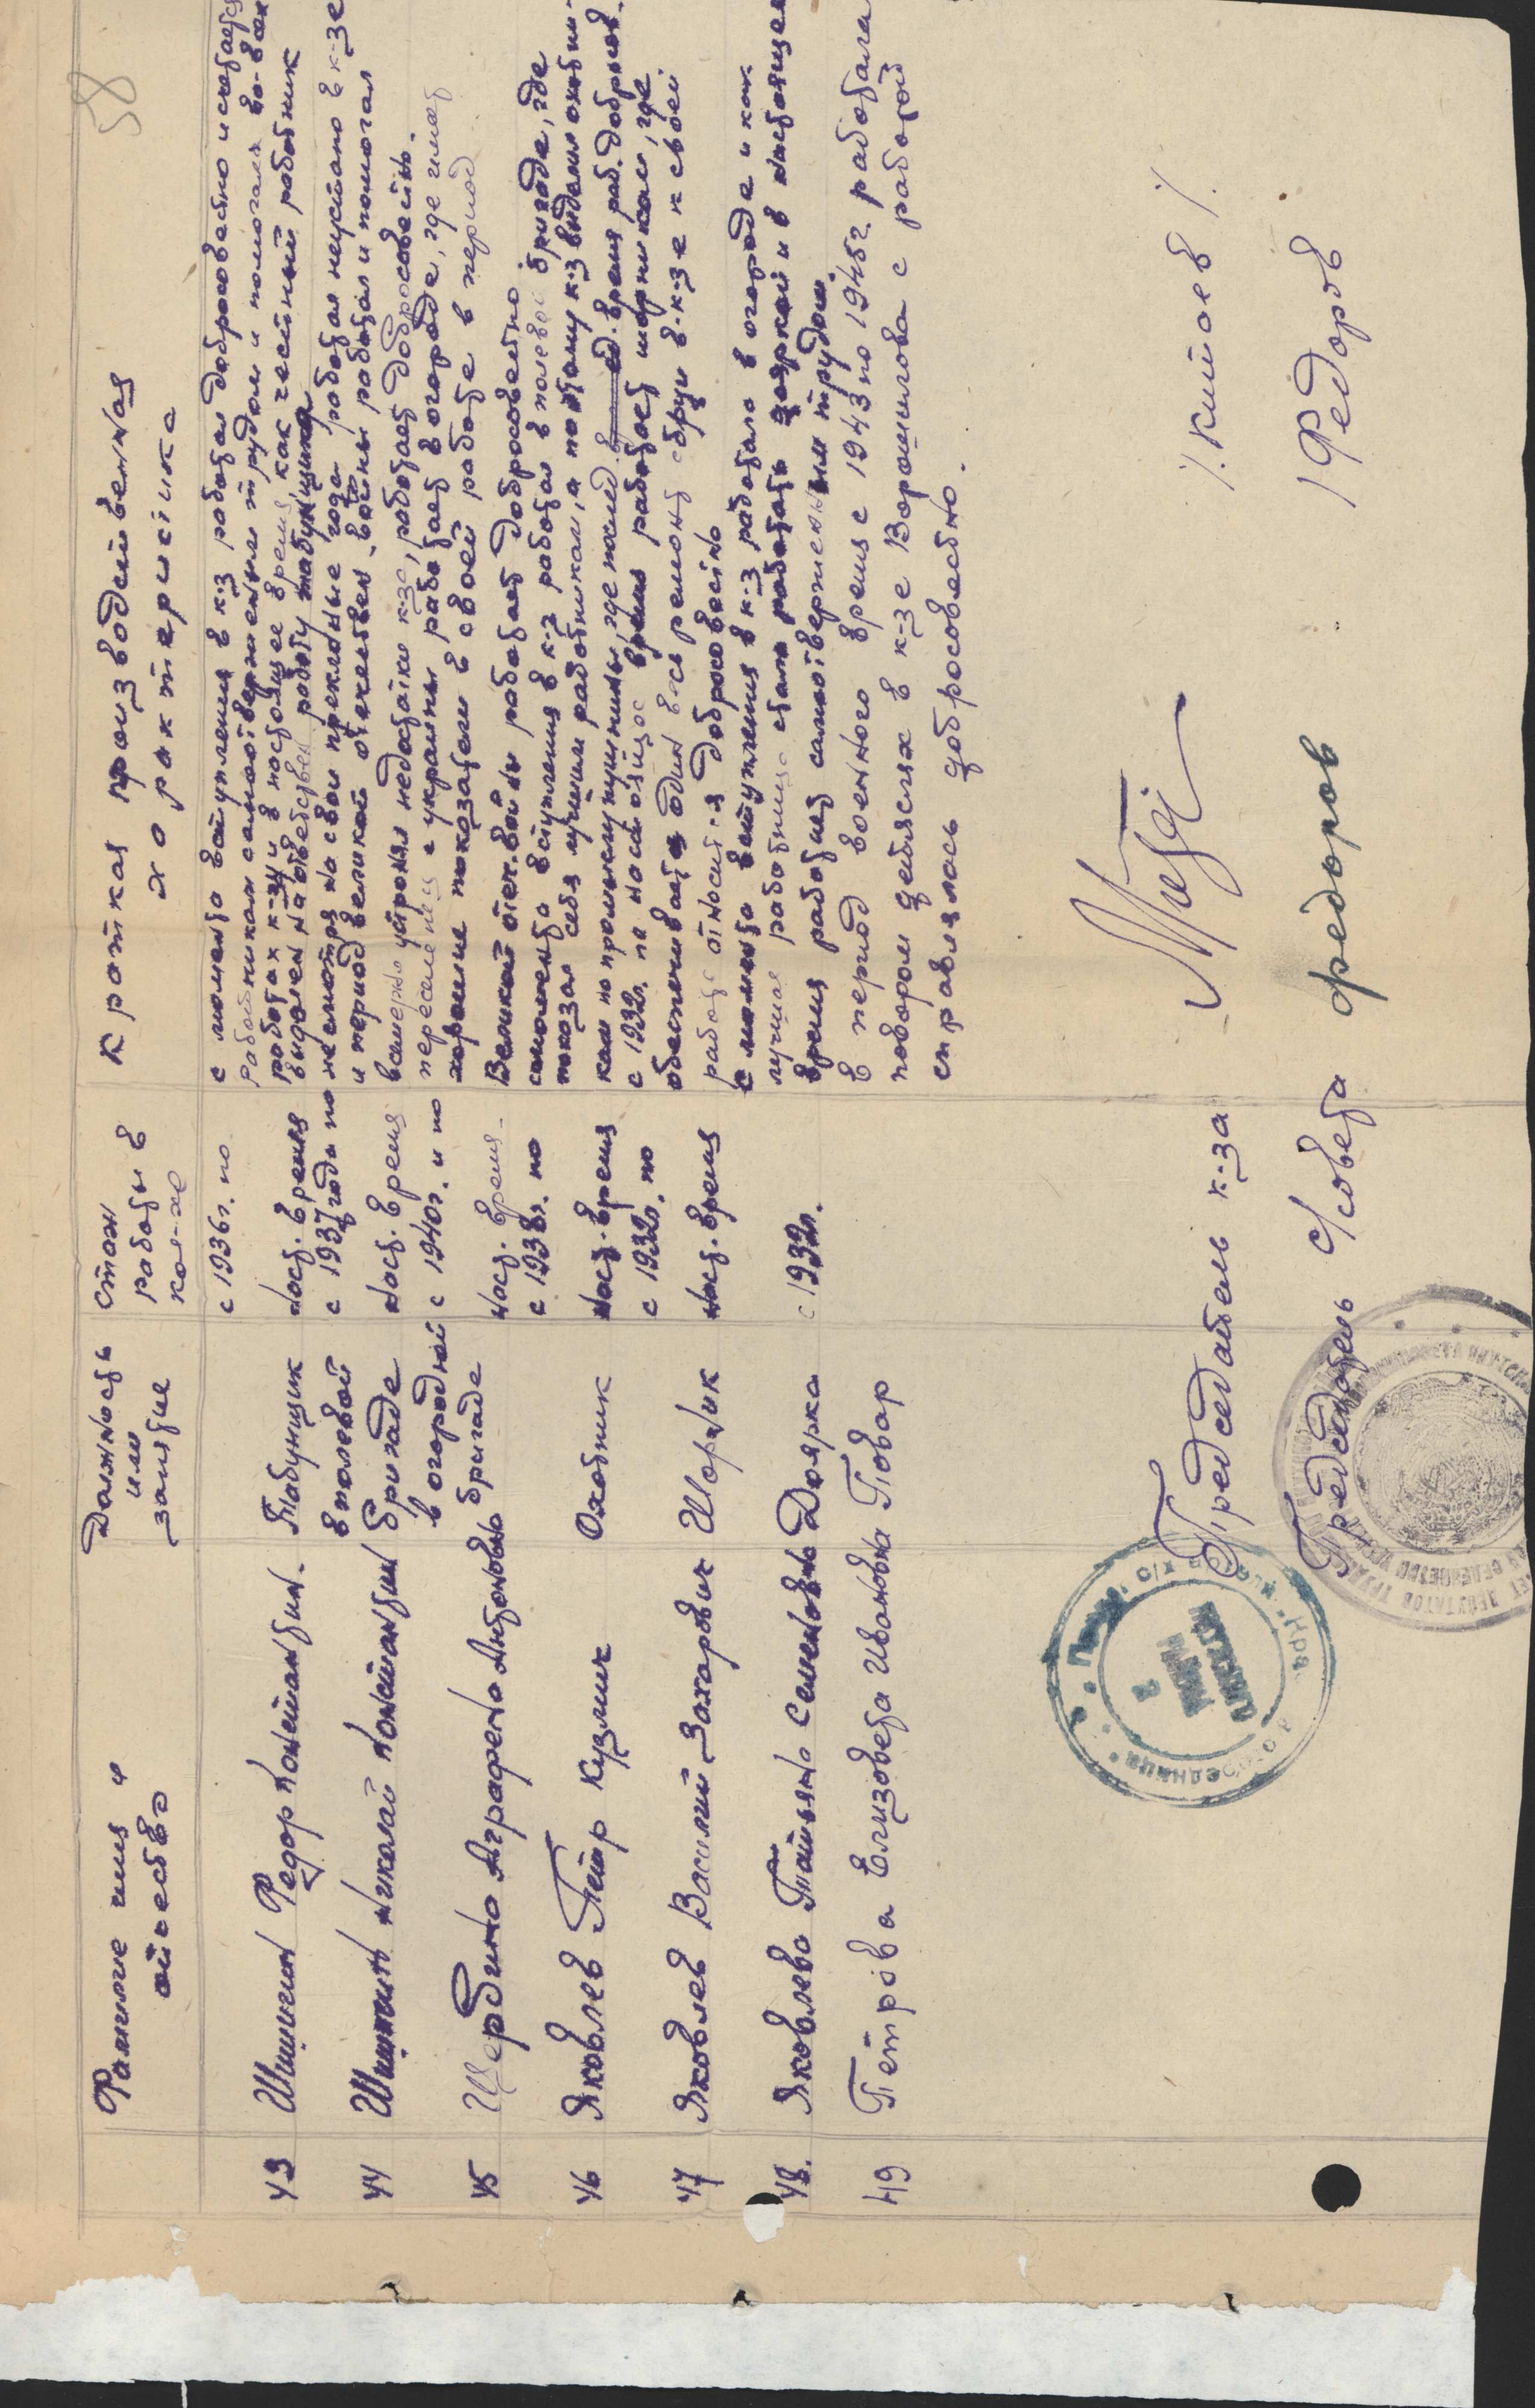 58
Фамилие имя и
отчество
Должность
или
занятие
стаж
работы в
кол-зе
Краткая производственная
характеристика
43 Шишигин Федор Константин. Табунщик
с 1936г. по
наст. время
с момента вступления в к-з работал добросовестно и считается
работником самоотверженным трудом и помогала во-всех
работах к-за и в настоящее время, как честный работник
выделен на ответствен работу табунщика
44 Шишигин Николай Константин
в полевой
бригаде
с 1937 года по
наст. время
несмотря на свои преклонные годы работал неустано в к-зе
и период великой отечествен. войны работал и помогал
всемерно устранял недостатки к-за, работает добросовестно.
45 Щербина Аграфена Антоновна
в огородной
бригаде
с 1940г. и по
наст. время
переселенец с украины работает в огороде, где имет
хорошие показатели в своей работе в период
Великой отеч. войны работает добросовестно.
46 Яковлев Петр Кузмич Охотник
с 1938г. по
наст. время
с момента вступления в к-з работал в полевой бригаде, где
показал себя лучшим работником, а потому к-з выдвинил охотни-
ком по промыслу пушнины, где послед. время раб. добросов.
47 Яковлев Василий Захарович Шорник
с 1932г. по
наст. время
с 1932г. по настоящее время работает шорником, где
обеспечивает один весь ремонт сбруи в-к-зе к своей
работе относится добросовестно
48. Яковлева Татьяна Семеновна Доярка
с 1932г.
с момента вступления в к-з работала в огороде и как
лучшая работница стала работать дояркой и в настоящее
время работает самоотверженным трудом.
49 Петрова Елизовета Ивановна Повар
в период военного время с 1943 по 1945г. работала
поваром детяслях в к-зе Ворошилова с работой
справлялась добросовестно.
Председатель к-за /. Китоев /.
Председатель с/совета федоров / Федоров